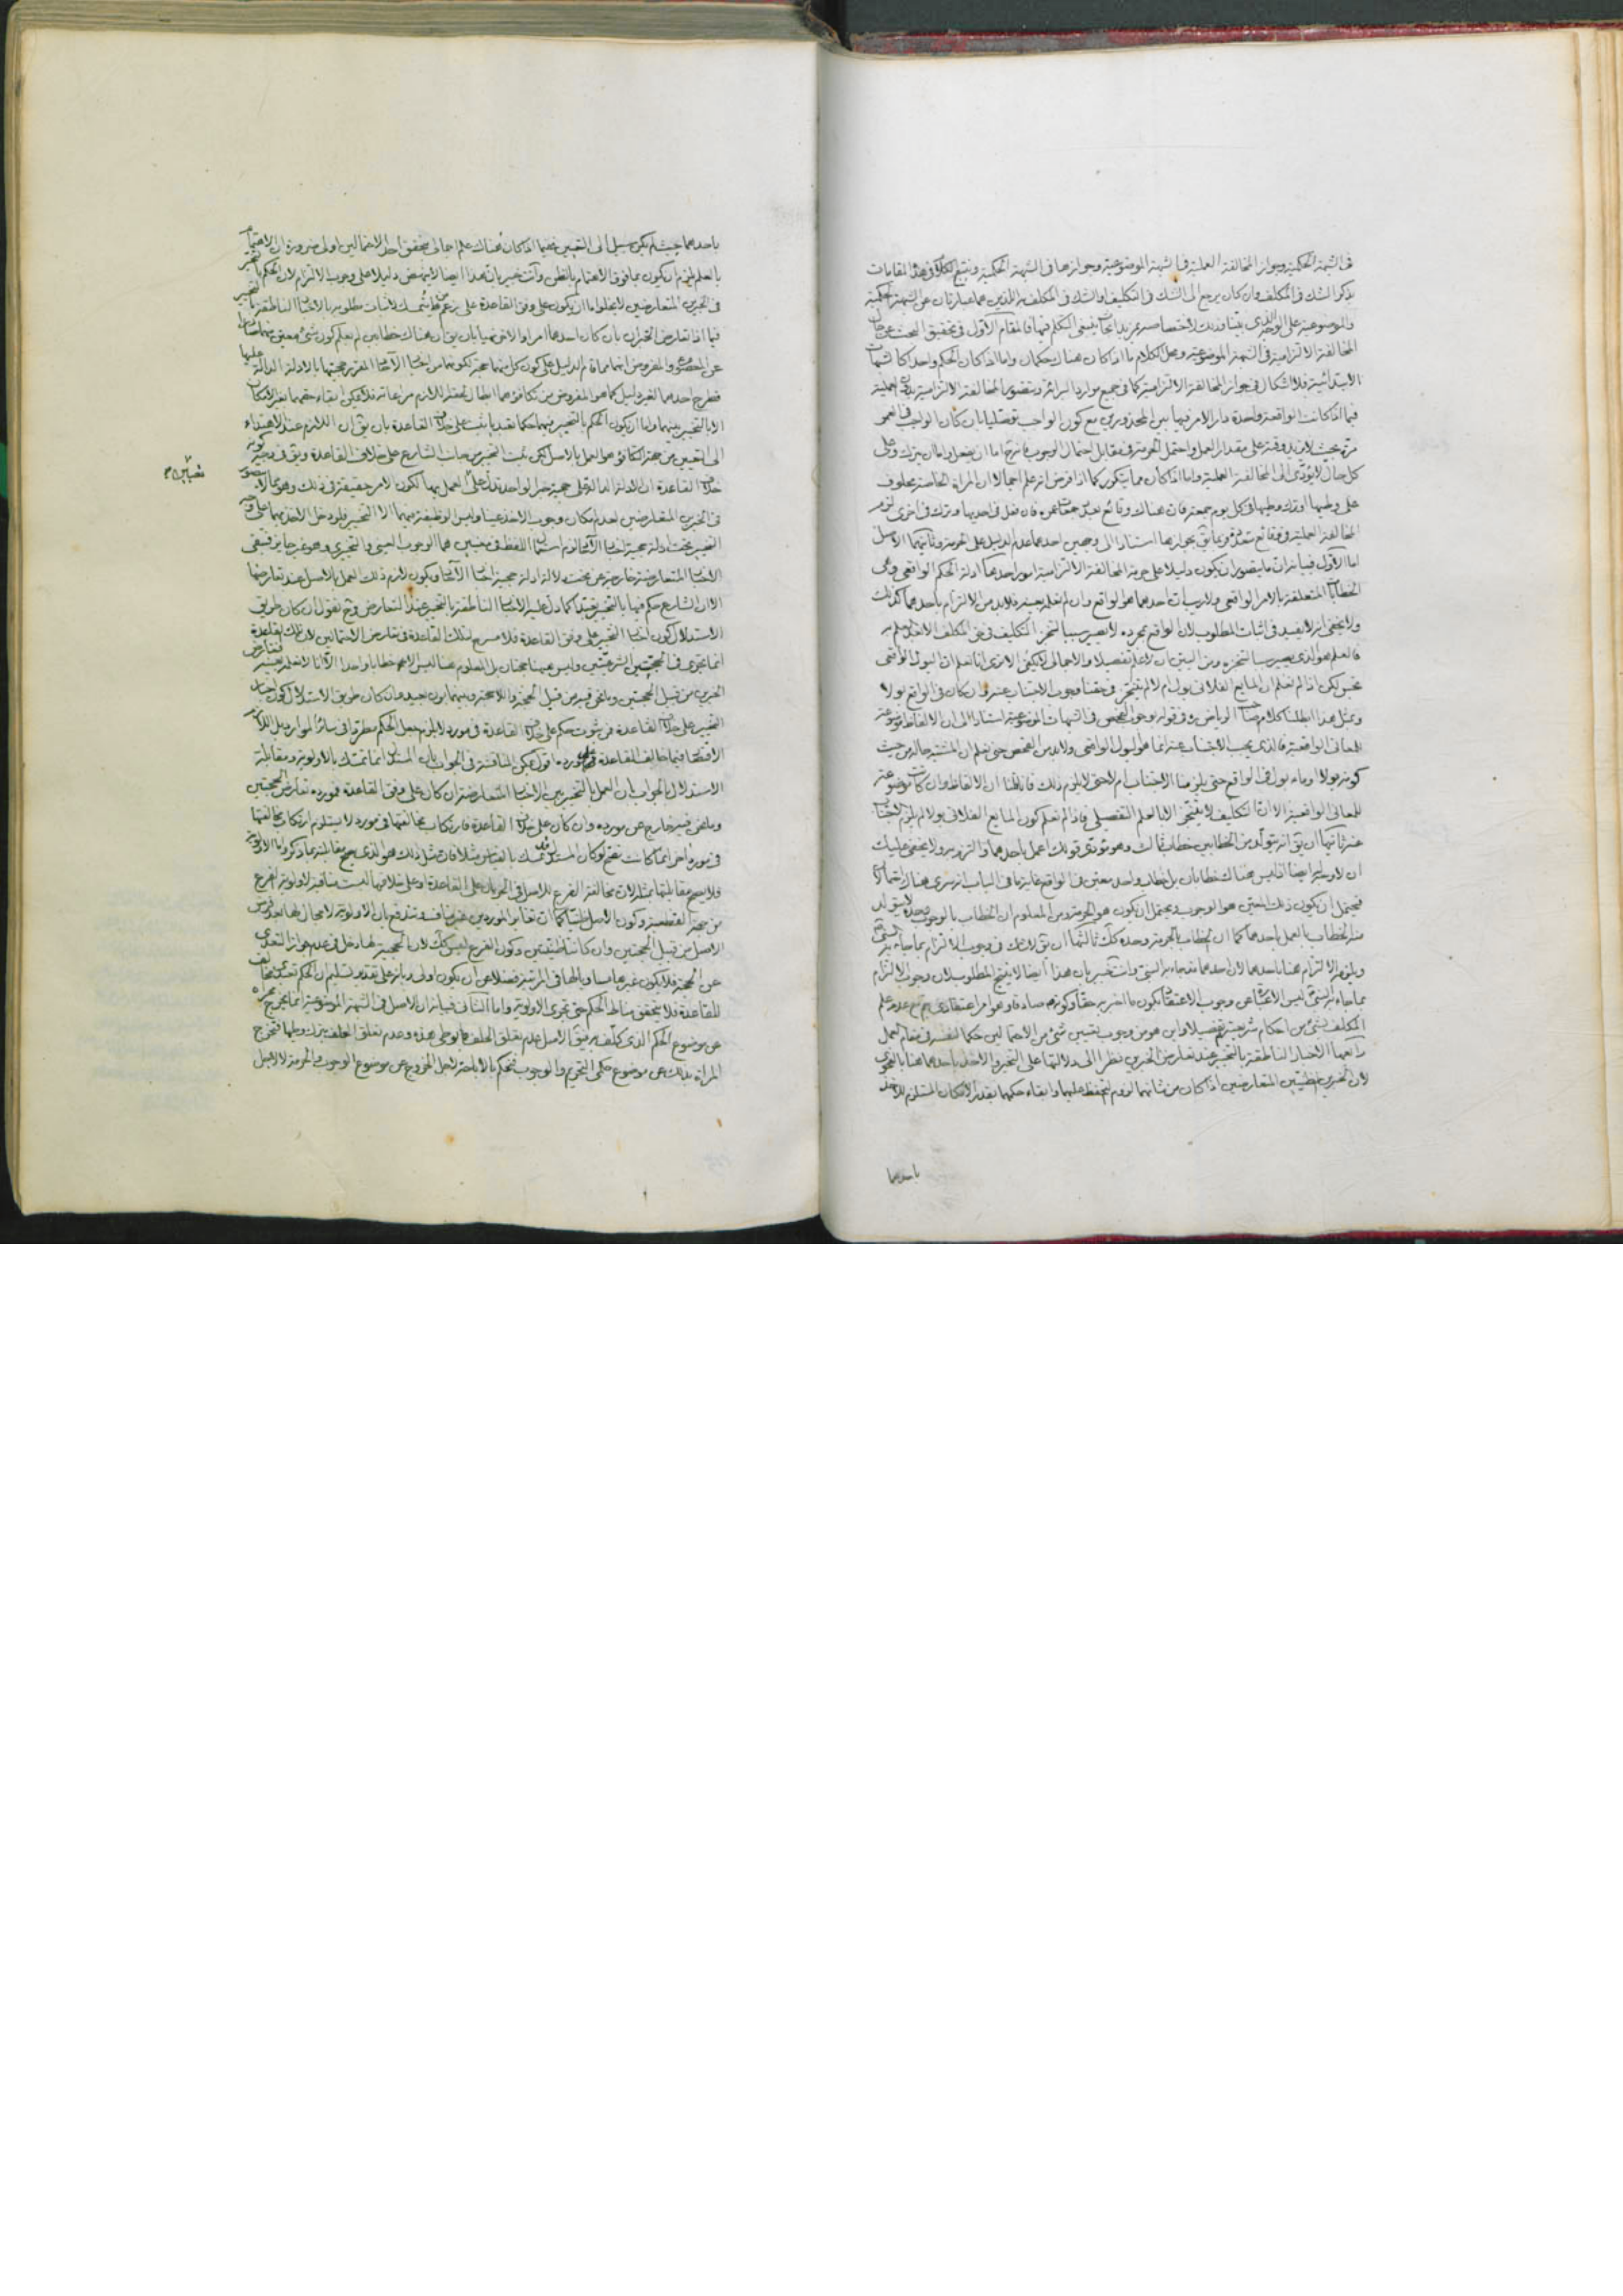 فى الشبهة الحكمية وجواز المخالفة العملية فى الشبهة الموضوعية وجوازها فى الشبهة الحكمية ونتبع الكلام فى هذه المقامات
بذكر الشك فى المكلف وان كان يرجع الى الشك فى التكليف او الشك فى المكلف به اللذين هما عبارتان عن الشبهة الحكمية
والموضوعية على الوجه الذى بينا وذلك لاختصاصه بمزيد ابحاث ينبغى التكلم فيها فالمقام الاول فى تحقيق البحث عن حال
المخالفة الالتزامية فى الشبهة الموضوعية ومحل الكلام ما اذا كان هناك حكمان واما اذا كان الحكم واحدا كالشبهات
الابتدائية فلا اشكال فى جواز المخالفة الالتزامية كما فى جميع موارد البرائة وتتصور المخالفة الالتزامية بدون العملية
فيما اذا كانت الواقعة واحدة دار الامر فيها بين المحذورين مع كون الواجب توصليا بان كان الواجب فى العمر
مرة بحيث لا يزيد وقته على مقدار العمل واحتمل الحرمة فى مقابل احتمال الوجوب فانه ح اما ان يفعل واما ان يترك وعلى
كل حال لا يؤدى الى المخالفة العملية واما اذا كان مما يتكرر كما اذا فرض انه علم اجمالا ان المراة الخاصة محلوف
على وطيها او ترك وطيها فى كل يوم جمعة فان هناك وقائع بعدد جمعات عمره فان فعل فى احديها وترك فى اخرى لزم
المخالفة العملية فى وقائع متعددة وربما يق بجوازها استنادا الى وجهين احدهما عدم الدليل على الحرمة وثانيهما الاصل
اما الاول فبيانه ان ما يتصور ان يكون دليلا على حرمة المخالفة الالتزامية امور احدها ادلة الحكم الواقعى وهى
الخطابات المتعلقة بالامر الواقعى ولا ريب ان احدهما هو الواقع وان لم نعلمه بعينه فلابد من الالتزام باحدهما كذلك
ولا يخفى انه لا يفيد فى اثبات المطلوب لان الواقع بمجرده لا يصير سببا لتنجز التكليف فى حق المكلف الا بعد علمه به
فالعلم هو الذى يصير سببا لتنجزه ومن البين ان لا علم تفصيلا والاجمالى لا يكفى الا ترى انا نعلم ان البول الواقعى
نجس لكن اذا لم نعلم ان المايع الفلانى بول ام لا لم يتنجز فى حقنا وجوب الاجتناب عنه وان كان فى الواقع بولا
وبمثل هذا ابطلنا كلام صاحب الرياض ره فى قوله بوجوب الفحص فى الشبهات الموضوعية استنادا الى ان الالفاظ موضوعة
للمعانى الواقعية فالذى يجب الاجتناب عنه انما هو البول الواقعى ولابد من الفحص حتى نعلم ان المشتبه حاله من حيث
كونه بولا او ماء بول فى الواقع حتى يلزمنا الاجتناب ام لا حتى لا يلزم ذلك فانا قلنا ان الالفاظ وان كانت موضوعة
للمعانى الواقعية الا ان التكليف لا يتنجز الا بالعلم التفصيلى فاذا لم نعلم كون المايع الفلانى بولا لم يلزم الاجتناب
عنه ثانيها ان يق انه يتولد من الخطابين خطاب ثالث وهو مؤدى قولك اعمل باحدهما والتزم به ولا يخفى عليك
ان لا وجه له ايضا اذ ليس هناك خطابان بل خطاب واحد معين فى الواقع غاية ما فى الباب انه يسرى هناك احتمالا
فيحتمل ان يكون ذلك المعين هو الوجوب ويحتمل ان يكون هو الحرمة ومن المعلوم ان الخطاب بالوجوب وحده لا يتولد
منه الخطاب بالعمل باحدهما كما ان الخطاب بالحرمة وحده كك ثالثها ان يق لا شك فى وجوب الالتزام بما جاء به النبى ص
ويلزم الالتزام هنا باحدهما لان احدهما مما جاء به النبى وانت خبير بان هذا ايضا لا ينتج المطلوب لان وجوب الالتزام
بما جاء به النبى ليس الا عبارة عن وجوب الاعتقاد بكون ما اخبر به حقا وكونه ص صادقا وهو امر اعتقادى يجتمع مع عدم علم
المكلف بشئ من احكام شريعته تفصيلا واين هو من وجوب تعيين شئ من الاحتمالين حكما لنفسه فى مقام العمل
رابعها الاخبار الناطقة بالتخيير عند تعارض الخبرين نظرا الى دلالتها على التخيير والاخذ باحدهما هنا بالفحوى
لان الخبرين الظنيين المتعارضين اذا كان من شانهما لزوم التحفظ عليهما وابقاء حكمهما بقدر الامكان المستلزم للاخذ
باحدهما
باحدهما حيث لم يكن سبيل الى التعيين ففيما اذا كان هناك علم اجمالى بتحقق احد الاحتمالين اولى ضرورة ان الاهتمام
بالعلم لزم ان يكون بما فوق الاهتمام بالظن وانت خبير بان هذا ايضا لا ينهض دليلا على وجوب الالتزام لان الحكم بالتخيير
فى الخبرين المتعارضين لا يخلو اما ان يكون على وفق القاعدة على زعم من يتمسك لاثبات مطلوبه بالاخبار الناطقة بالتخيير
فيما اذا تعارض الخبران بان كان احدهما امرا والاخر نهيا بان يق ان هناك خطابين لم نعلم كون شئ معين منهما صادرا
عن المعصوم والمفروض انهما مما قام الدليل على كون كل منهما حجة لكونهما من اخبار الآحاد المقرر حجيتها بالادلة الدالة عليها
فطرح احدهما لغير دليل كما هو المفروض من تكافؤهما ابطال لحقه اللازم مراعاته فلا يمكن ابقاء حقهما بقدر الامكان
الا بالتخيير بينهما واما ان يكون الحكم بالتخيير فيهما حكما تعبديا ثبت على خلاف القاعدة بان يق ان اللازم عند الاهتداء
الى التعيين من جهة التكافؤ هو العمل بالاصل لكن ثبت التخيير من جانب الشارع على خلاف القاعدة ويق فى وجه كونه
خلاف القاعدة ان الادلة الدالة على حجية خبر الواحد تدل على العمل بها لكون الامر حقيقة فى ذلك وهو مما لا يتصور
تعيينا م
فى الخبرين المتعارضين لعدم امكان وجوب الاخذ عينا وليس الوظيفة فيهما الا التخيير فلو دخل الاخذ بهما على وجه
التخيير تحت ادلة حجية اخبار الآحاد لزم استعمال اللفظ فى معنيين هما الوجوب العينى والتخييرى وهو غير جايز فتبقى
الاخبار المتعارضة خارجة عن تحت دلالة ادلة حجية اخبار الآحاد ويكون لازم ذلك العمل بالاصل عند تعارضها
الا ان الشارع حكم فيها بالتخيير تعبدا كما دل عليه الاخبار الناطقة بالتخيير عند التعارض وح نقول ان كان طريق
الاستدلال كون اخبار التخيير على وفق القاعدة فلا مسرح لتلك القاعدة فى تعارض الاحتمالين لان تلك القاعدة
انما تجرى فى الحجتين الشرعيتين وليس هيهنا حجتان بل المعلوم هنا ليس الا خطابا واحدا الا انا لا نعلمه بعينه فتعارض
الخبرين من قبيل الحجتين وما نحن فيه من قبيل الحجة واللاحجة وبينهما بون بعيد وان كان طريق الاستدلال كون اخبار
التخيير على خلاف القاعدة فمن ثبوت حكم على خلاف القاعدة فى مورد لا يلزم جعل الحكم مطردا فى سائر الموارد بل اللازم
الاقتصار فيما خالف القاعدة على مورده اقول يمكن المناقشة فى الجواب بان المستدل انما تمسك بالاولوية ومقابلة
الاستدلال بالجواب بان العمل بالتخيير بين الاخبار المتعارضة ان كان على وفق القاعدة فمورده تعارض الحجتين
وما نحن فيه خارج عن مورده وان كان على خلاف القاعدة فارتكاب مخالفتها فى مورد لا يستلزم ارتكاب مخالفتها
فى مورد اخر انما كانت تصح لو كان المستدل قد تمسك بالقياس مثلا فان مثل ذلك هو الذى يصح مقابلته بما ذكر واما الاولوية
فلا يصح مقابلتها بمثله لان مخالفة الفرع للاصل فى الجريان على القاعدة او على خلافها ليست منافية لاولوية الفرع
من جهة القطعية وكون الاصل ظنيا كما ان تغاير الموردين غير مناف وتندفع بان الاولوية لا مجال لها بعد كون
الاصل من قبيل الحجتين وان كانتا ظنيتين وكون الفرع ليس كك لان للحجية لها دخل فى عدم جواز التعدى
عن الحجة فلا يكون غيرها مساويا لها فى المرتبة فضلا عن ان يكون اولى وبانه على تقدير تسليم ان الحكم تعبدى مخالف
للقاعدة فلا يتحقق مناط الحكم حتى تجرى الاولوية واما الثانى فبيانه ان الاصل فى الشبهة الموضوعية انما يخرج مجراه
عن موضوع الحكم الذى كلف به فيق الاصل عدم تعلق الحلف بوطى هذه وعدم تعلق الحلف بترك وطيها فتخرج
المراة بذلك عن موضوع حكمى التحريم والوجوب فيحكم بالاباحة لاجل الخروج عن موضوع الوجوب والحرمة لا لاجل